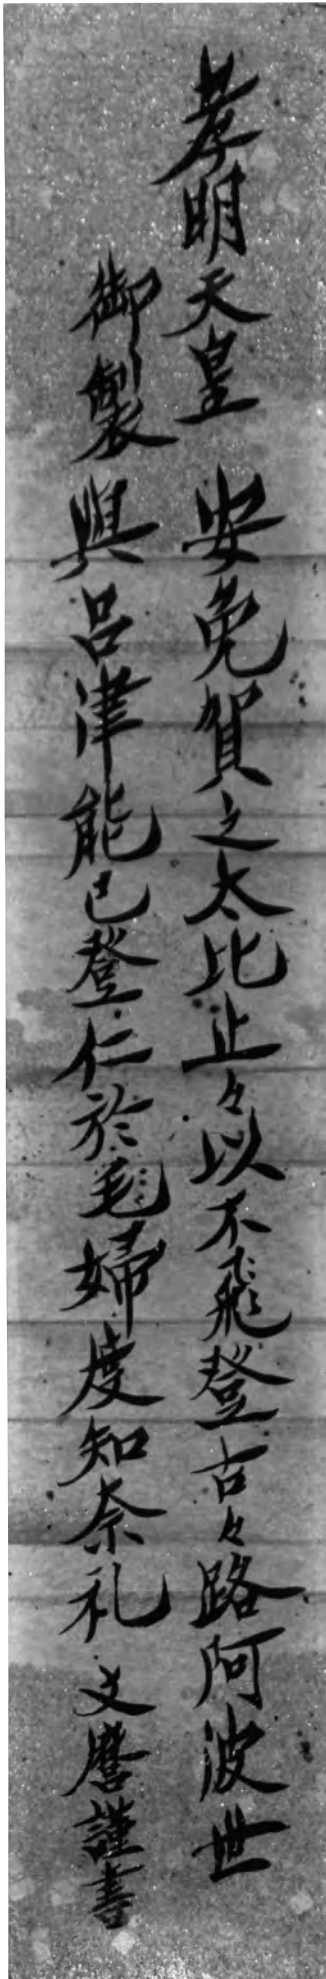 孝明天皇 安免賀之太比止々以不飛登古々路阿波世
御製 與呂津能已登仁於毛婦度知奈礼 文麿謹書